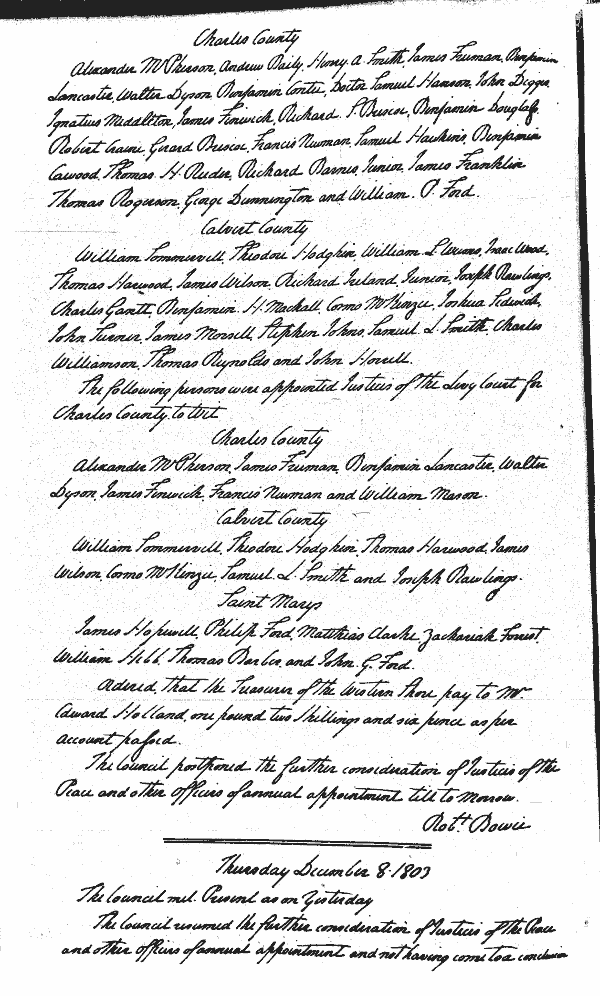 Charles County
Alexander McPherson, Andrew Baily, Henry A. Smith, James Freeman, Benjamin
Lancaster, Walter Dyson, Benjamin Contee, Doctor Samuel Hanson, John Digges,
Ignatius Middleton, James Fenwick, Richard Briscoe, Benjamin Douglass,
Robert Crain, Gerard Briscoe, Francis Newman, Samuel Hawkins, Benjamin
Cawood, Thomas H. Reeder, Richard Barnes, Junior, James Franklin
Thomas Rogerson, George Dunnington and William P. Ford.
Calvert County
William Sommervell, Theodore Hodgkin, William L. Weems, Isaac Wood,
Thomas Harwood, James Wilson, Richard Ireland, Junior, Joseph Rawlings,
Charles Gantt, Benjamin H. Mackall, Cosmo McKenzie, Joshua Sedwick,
John Turner, James Morsell, Stephen Johns, Samuel L. Smith, Charles
Williamson, Thomas Reynolds and John Horrell.
The following persons were appointed Justices of the Levy Court for
Charles County, to Wit
Charles County
Alexander McPherson, James Freeman, Benjamin Lancaster, Walter
Dyson, James Fenwick, Francis Newman and William Mason.
Calvert County
William Sommervell, Theodore Hodgkin, Thomas Harwood, James
Wilson, Cosmo McKenzie, Samuel L. Smith and Joseph Rawlings.
Saint Marys
James Hopewell, Philip Ford, Matthias Clarke, Zachariah Forrest,
William Hebb, Thomas Barber, and John G. Ford.
Ordered, that the Treasurer of the Western Shore pay to Mr.
Edward Holland, one pound two Shillings and six pence as per
account passed.
The Council postponed the further consideration of Justices of the
Peace and other officers of annual appointment till to Morrow.
Robt. Bowie
Thursday December 8. 1803
The Council met. Present as on Yesterday
The Council resumed the further consideration of Justices of the Peace
and other officers of annual appointment and not having come to a conclusion